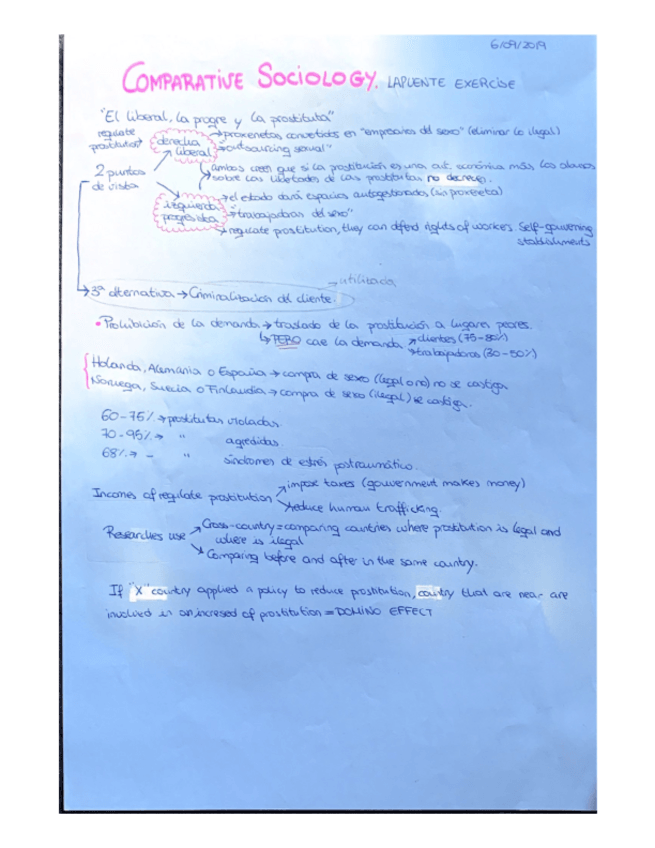 6/09/2019
COMPARATIVE SOCIOLOGY. LAPUENTE EXERCISE
"El liberal, la progre y la prostituta"
regulate prostitution
derecha liberal
→ proxenetas convertidos en "empresarios del sexo" (eliminar lo ilegal)
→ "outsourcing sexual"
2 puntos de vista
ambos creen que si la prostitución es una act. económica más, los abusos
sobre las libertades de las prostitutas no decrece.
izquierda progresista
→ el estado dará espacios autogestionados (sin proxeneta)
→ "trabajadoras del sexo"
→ regulate prostitution, they can defend rights of workers. Self-gouverning
stablishments
→ utilizada
→ 3ª alternativa → Criminalización del cliente.
• Prohibición de la demanda → traslado de la prostitución a lugares peores.
↳ PERO cae la demanda
→ clientes (75-80%)
→ trabajadoras (30-50%)
Holanda, Alemania o España → compra de sexo (legal o no) no se castiga
Noruega, Suecia o Finlandia → compra de sexo (ilegal) se castiga.
60-75% → prostitutas violadas.
70-95% → " agredidas.
68% → " síndromes de estrés postraumático.
Incomes of regulate prostitution
→ impose taxes (gouvernment makes money)
→ reduce human trafficking.
Researches use
→ Cross-country = comparing countries where prostitution is legal and
where is ilegal
→ Comparing before and after in the same country.
If "X" country applied a policy to reduce prostitution, country that are near are
involved in an incresed of prostitution = DOMINO EFFECT